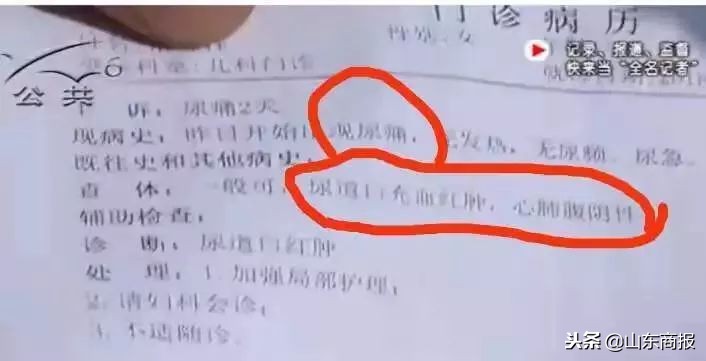 门诊病历
性别：女
科室：儿科门诊
记录、报道、监督
快来当“全名记者”
6
公共
诉：尿痛2天
现病史：昨日开始出现尿痛，无发热，无尿频、尿急。
既往史和其他病史：
查 体：一般可，尿道口充血红肿，心肺腹阴性
辅助检查：
诊 断：尿道口红肿
处 理：1.加强局部护理；
2.请妇科会诊；
3.不适随诊。
头条@山东商报